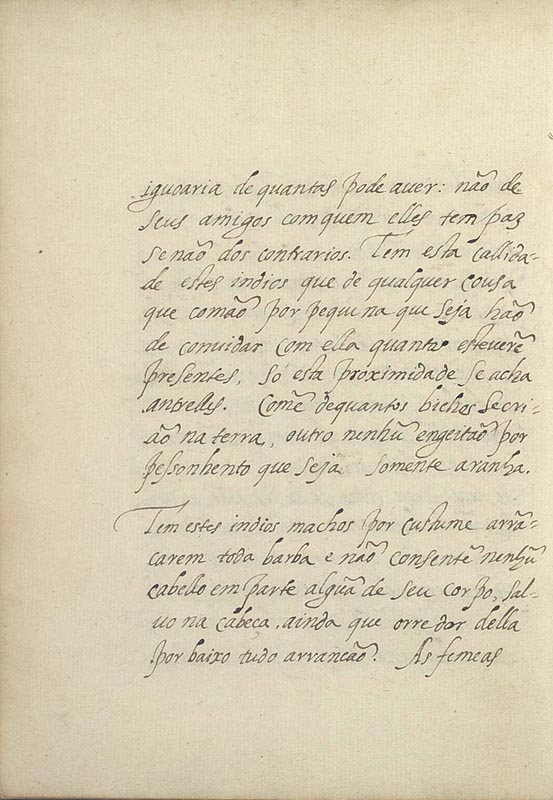 iguoaria de quantas pode auer: não de
seus amigos com quem elles tem paz
se não dos contrarios. Tem esta callida-
de estes indios que de qualquer cousa
que comão por pequena que seja hão
de conuidar com ella quantos esteuerẽ
presentes, só esta proximidade se acha
antrelles. Comẽ de quantos bichos se cri-
ão na terra, outro nenhũ engeitão por
pessonhento que seja somente aranha.
Tem estes indios machos por custume arrã-
carem toda barba e não consentẽ nenhũ
cabello em parte algũa de seu corpo, sal-
uo na cabeça, ainda que orredor della
por baixo tudo arrancão. As femeas